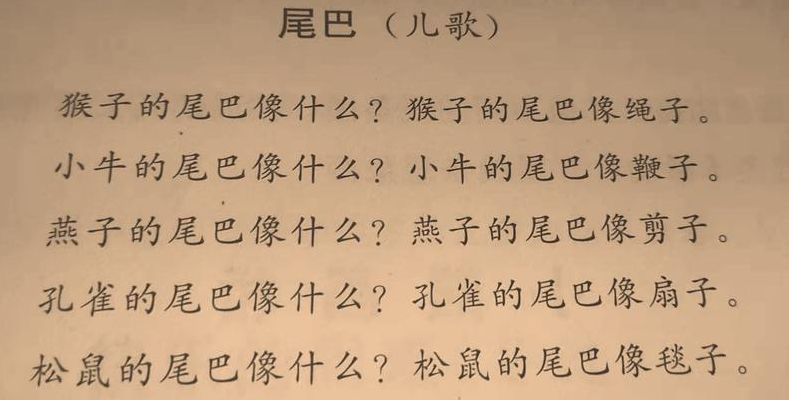 尾巴（儿歌）
猴子的尾巴像什么？猴子的尾巴像绳子。
小牛的尾巴像什么？小牛的尾巴像鞭子。
燕子的尾巴像什么？燕子的尾巴像剪子。
孔雀的尾巴像什么？孔雀的尾巴像扇子。
松鼠的尾巴像什么？松鼠的尾巴像毯子。